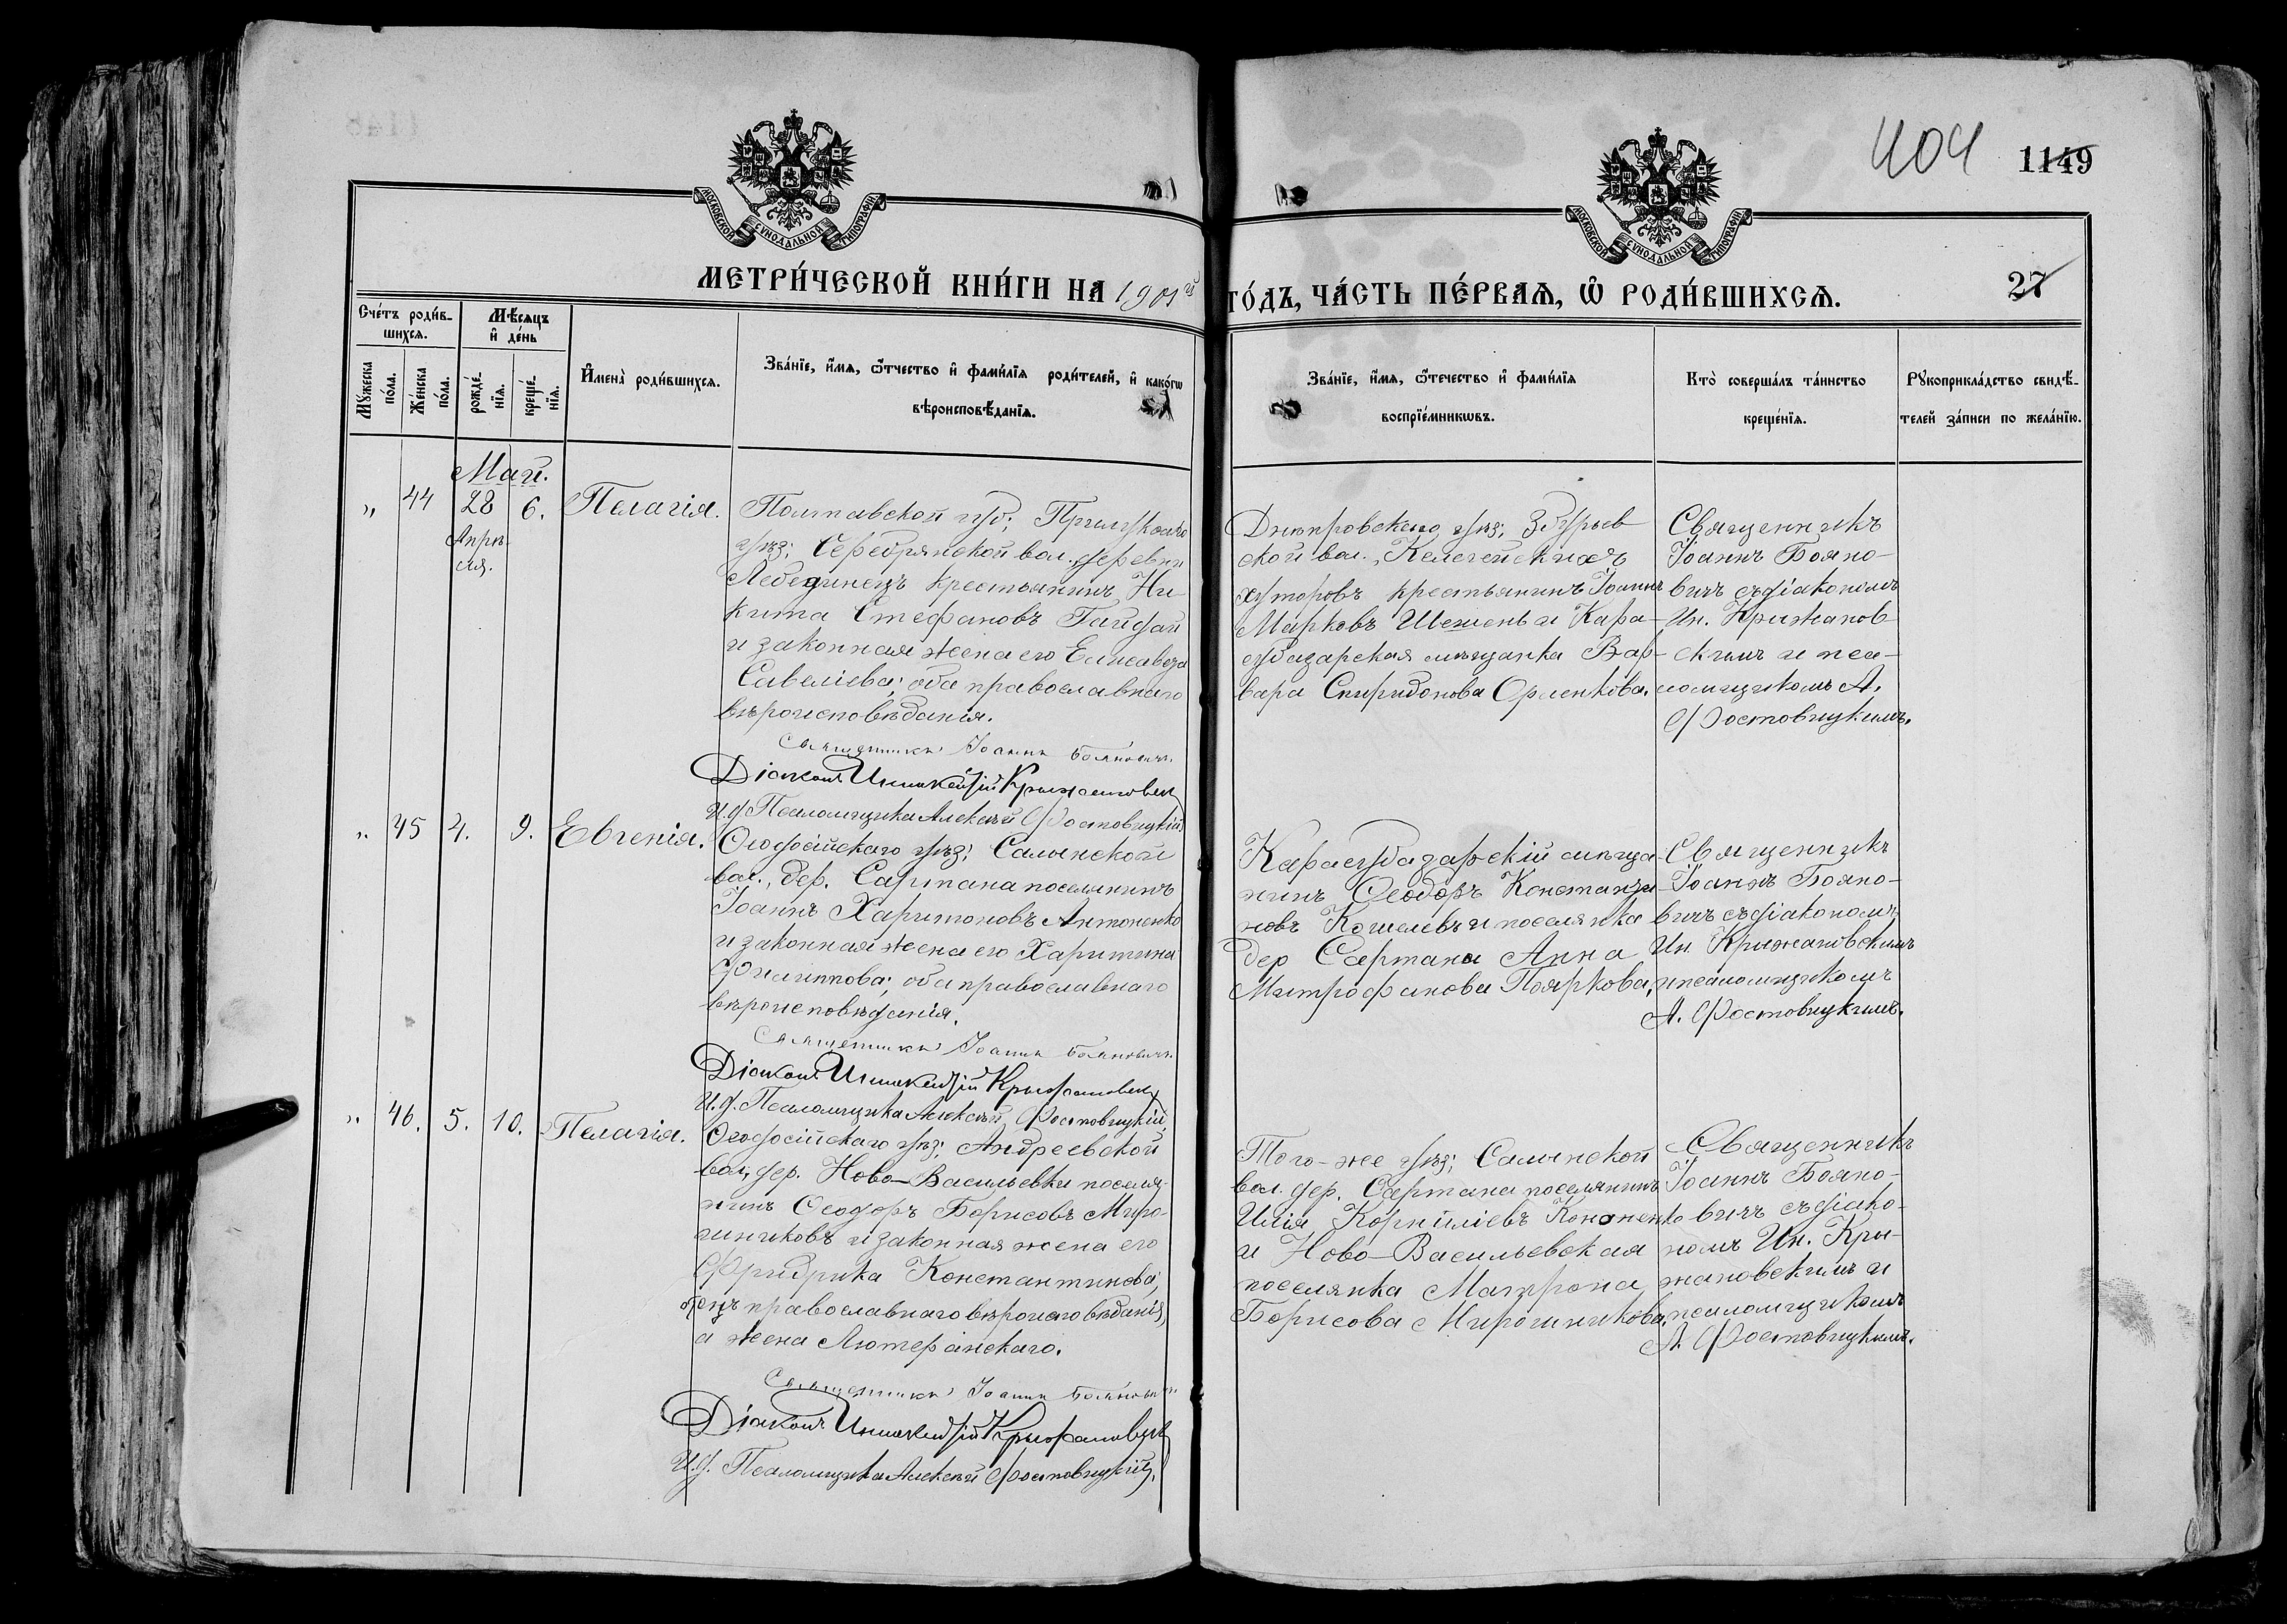 404
1149
МОСКОВСКОЙ СѴНОДАЛЬНОЙ ТИПОГРАФІИ
МОСКОВСКОЙ СѴНОДАЛЬНОЙ ТИПОГРАФІИ
МЕТРИ́ЧЕСКОЙ КНИ́ГИ НА 1901й
ГО́ДЪ, ЧА́СТЬ ПЕ́РВАѦ, Ѡ҆ РОДИ́ВШИХСѦ.
27
Сче́тъ роди́в-
шихсѧ.
Мѣ́сѧцъ
и҆ де́нь
Мꙋ́жеска
по́ла.
Же́нска
по́ла.
рожде́-
нїѧ.
креще́-
нїѧ.
И҆мена̀ роди́вшихсѧ.
Зва́нїе, и҆́мѧ, ѻ҆́тчество и҆ фами́лїѧ роди́телей, и҆ како́гѡ
вѣроисповѣ́данїѧ.
Зва́нїе, и҆́мѧ, ѻ҆те́чество и҆ фами́лїѧ
воспрїе́мникѡвъ.
Кто̀ соверша́лъ та́инство
креще́нїѧ.
Рꙋкоприкла́дство свидѣ́-
телей за́писи по жела́нїю.
Май.
„ 44 28 6. Пелагія.
Апрѣ-
ля.
Полтавской губ; Прилукскаго
уѣз; Серебрянской вол., деревни
Лебединецъ крестьянинъ Ни-
кита Стефановъ Гайдай
и законная жена его Елисавета
Савеліева; оба православнаго
вѣроисповѣданія.
Священникъ Іоаннъ Бояновичъ.
Діаконъ Иннокентій Крыжановскій
И.д. Псаломщика Алексѣй Фостовицкій
Днѣпровскаго уѣз; Збурьев
ской вол., Келегейскихъ
хуторовъ крестьянинъ Іоаннъ
Марковъ Шеленъ и Кара-
субазарская мѣщанка Вар-
вара Спиридонова Орленкова.
Священникъ
Іоаннъ Бояно-
вичъ съ діакономъ
Ин. Крыжанов-
скимъ и пса-
ломщикомъ А.
Фостовицкимъ.
„ 45 4. 9. Евгенія.
Ѳеодосійскаго уѣз; Салынской
вол., дер. Сартана поселянинъ
Іоаннъ Харитоновъ Антоненко
и законная жена его Харитина
Филиппова; оба православнаго
вѣроисповѣданія.
Священникъ Іоаннъ Бояновичъ.
Діаконъ Иннокентій Крыжановскій
И.д. Псаломщика Алексѣй Фостовицкій,
Карасубазарскій мѣща-
нинъ Ѳеодоръ Константи-
новъ Кошелевъ и поселянка
дер Сартана Анна
Митрофанова Пояркова,
Священникъ
Іоаннъ Бояно-
вичъ съ діакономъ
Ин. Крыжановскимъ
и псаломщикомъ
А. Фостовицкимъ.
„ 46. 5. 10. Пелагія.
Ѳеодосійскаго уѣз; Андреевской
вол, дер. Ново-Васильевки поселя-
нинъ Ѳеодоръ Борисовъ Миро-
шниковъ и законная жена его
Фридрика Константинова;
отецъ православнаго вѣроисповѣданія,
а жена Лютеранскаго.
Священникъ Іоаннъ Бояновичъ
Діаконъ Иннокентій Крыжановскій
И.д. Псаломщика Алексѣй Фостовицкій.
Того-же уѣз; Салынской
вол. дер. Сартана поселянинъ
Илія Корниліевъ Кононенко
и Ново-Васильевская
поселянка Матрона
Борисова Мирошникова,
Священникъ
Іоаннъ Бояно-
вичъ съ діако-
номъ Ин. Кры-
жановскимъ и
псаломщикомъ
А. Фостовицкимъ.